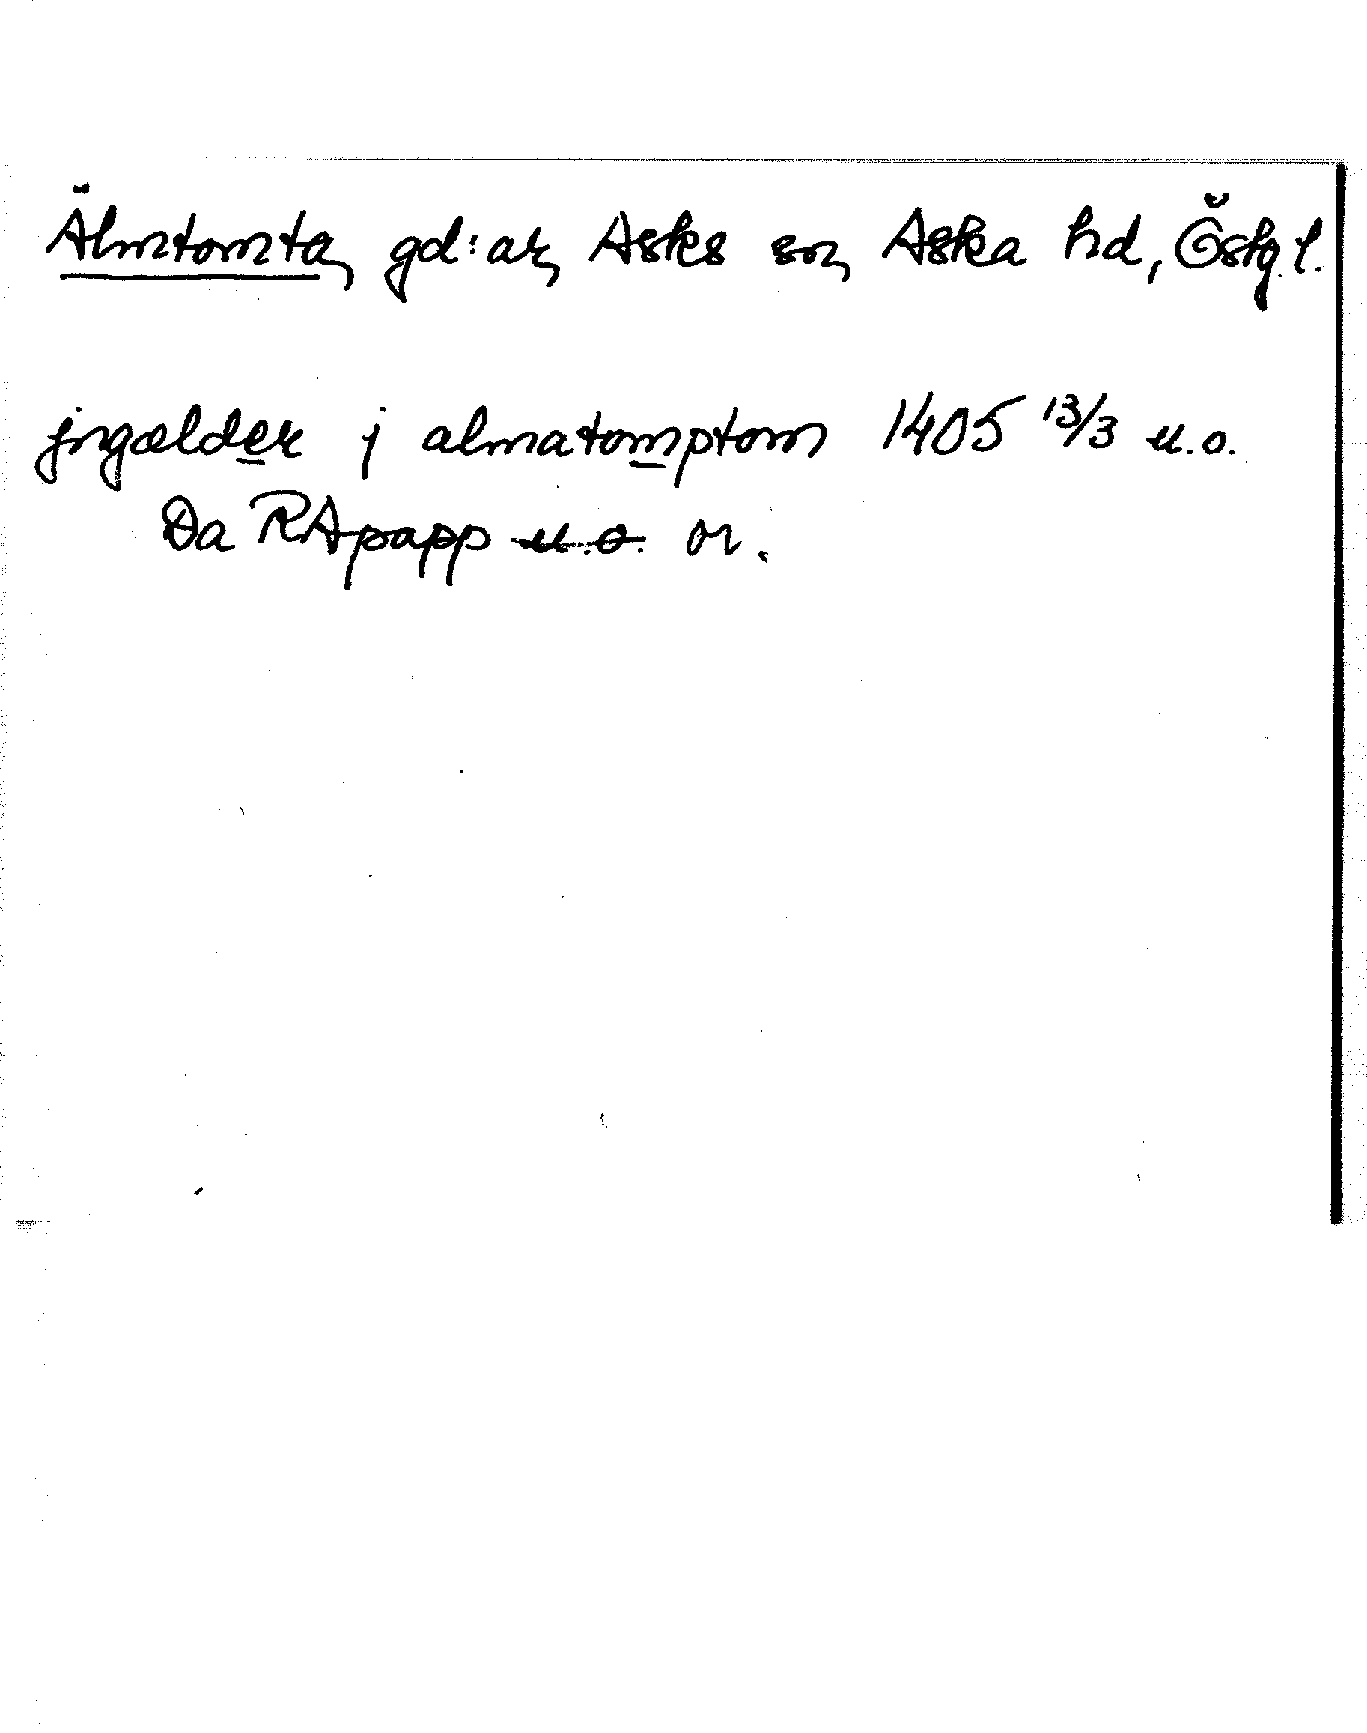 Älmtomta, gd:ar, Asks sn, Aska hd, Östg.l.
jngælder j almatomptom 1405 13/3 u.o.
Da RApapp u.o. or.